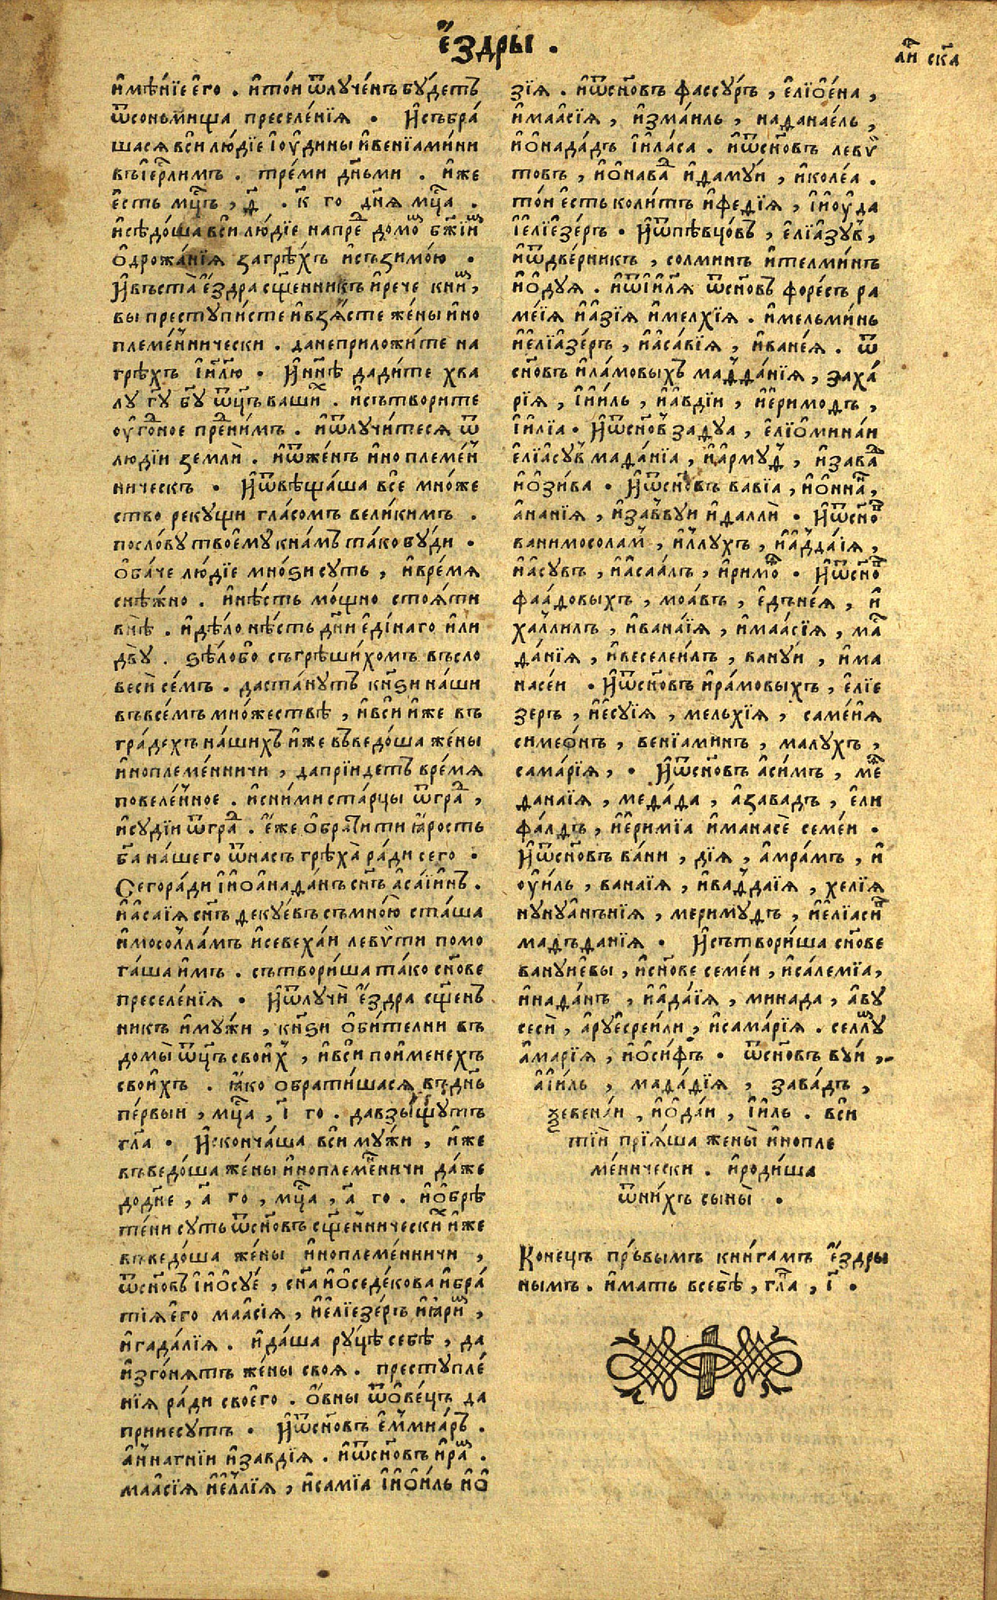 е҆́здры .
имѣ́нїе его̀ . и҆то́и ѿлꙋче́нъ бꙋ́детъ
ѿсоньмища преселе́нїѧ . И҆събра́
шасѧ вси лю́дїе і҆ꙋ́дины и҆венїами́ни
въіе҆рⷭ҇лимъ . тре́ми дн҃ьми . и҆же
е҆сть мцⷭ҇ъ , д҃ . к҃ го дн҃ѧ мцⷭ҇а .
и҆сѣдо́ша вси лю́дїе напреⷣ домоⷨ бж҃їиⷨ
ѻ҆дрожа́нїѧ загрѣ́хъ и҆съзимо́ю .
И҆въста̀ е҆́здра сщ҃е́нникъ и҆рече книⷨ ,
вы престꙋпи́сте и҆взѧ́сте жены̀ и҆но
племе́ннически . данеприложи́те на
грѣ́хъ і҆и҃лю . И҆нн҃ѣ дади́те хва
лꙋ гꙋ҃ бг҃ꙋ ѿц҃ъ ва́шиⷯ . и҆сътвори́те
ᲂу҆го́дное преⷣни́мъ . и҆ѿлꙋчи́тесѧ ѿ
людїи земли̑ . и҆ѿже́нъ и҆ноплеме́н
ническъ . И҆ѿвѣща́ша всѐ мно́же
ство рекꙋщи гла́сомъ вели́кимъ .
посло́вꙋ твоемꙋ̀ кна́мъ та́ко бꙋ́ди .
ѻ҆ба́че лю́дїе мно́ѕи сꙋть , и҆вре́мѧ
снѣ́жно . и҆нѣ́сть мо́щно стоѧ́ти
внѣ̀ . и҆дѣ́ло нѣ́сть дн҃и е҆ди́наго и҆ли
двꙋ̀ . ѕѣ́лобо съгрѣши́хомъ въсло
веси̑ се́мъ . даста́нꙋтъ кнѕ҃и на́ши
въвсе́мъ мно́жествѣ , и҆вси и҆же въ
гра́дехъ на́шихъ и҆же въведо́ша жены̀
и҆ноплеме́нничи , дапрїи́детъ вре́мѧ
повеле́нное . и҆сни́ми ста́рцы ѿграⷣ ,
и҆сꙋдїи ѿграⷣ . е҆́же ѻ҆брати́ти ꙗ҆́рость
бг҃а на́шего ѿна́съ грѣха̀ ра́ди сего̀ .
Сегора́ди і҆ѡ҆ана́данъ сн҃ъ а҆саи́инъ .
и҆а҆са́їѧ сн҃ъ декꙋе́въ съмно́ю ста́ша
и҆мосолла́мъ и҆севеха́и левѵ́ти помо
га́ша и҆мъ . сътвори́ша та́ко сн҃ове
преселе́нїѧ . И҆ѿлꙋчи̑ е҆́здра сщ҃ен
никъ и҆мꙋ́жи , кнѕ҃и ѻ҆би́телни въ
домы̀ ѿц҃ъ свои́хъ , и҆вси пои́менехъ
свои́хъ . ꙗ҆ко ѻ҆брати́шасѧ въдн҃ь
пе́рвыи , мцⷭ҇а , і҃ го . давзы́щꙋтъ
гл҃а . И҆сконча́ша вси мꙋ́жи , и҆же
въведо́ша жены̀ и҆ноплеме́нничи да́же
додн҃е , а҃ го , мцⷭ҇а , а҃ го . и҆ѻ҆брѣ
те́ни сꙋть ѿсн҃о́въ сщ҃е́ннически́хъ и҆же
въведо́ша жены̀ и҆ноплеме́нничи ,
ѿсн҃о́въ і҆и҆сꙋ́е , сн҃а и҆ѻ҆седе́кова и҆бра́
тїѧ е҆го̀ маасїѧ , и҆е҆лїезе́ръ и҆ꙗ҆риⷨ ,
и҆гадалїѧ . и҆да́ша рꙋ́цѣ себѣ̀ , да
и҆зго́нѧтъ жены̀ своѧ̀ . престꙋпле́
нїѧ ра́ди своего̀ . ѻ҆вны̀ ѿѻ҆ве́цъ да
принесꙋ́тъ . И҆ѿсн҃о́въ е҆ммиа́ръ .
а҆наги́и и҆завдїѧ . и҆ѿсн҃о́въ и҆раⷨ .
маасїѧ и҆е҆ллїѧ , и҆самїа і҆и҆ѻ҆и́ль и҆ѻ҆
зїѧ . и҆ѿсн҃о́въ фассꙋ́ръ , е҆лїѻ҆е́на ,
и҆маасїѧ , и҆зма́иль , надана́ель ,
и҆ѻ҆нада́дъ і҆и҆ла́са . и҆ѿсн҃о́въ левѵ̀
товъ , и҆ѻ҆наваⷣ и҆дамꙋ́и , и҆коле́а .
то́и е҆сть коли́тъ и҆федїѧ , і҆и҆ᲂу҆да
і҆е҆лїезе́ръ . И҆ѿпѣвцо́въ , е҆лїазꙋ́въ ,
и҆ѿдверникъ , солминъ и҆телми́нъ
и҆ѻ҆дꙋѧ . и҆ѿі҆и҃лѧ ѿсн҃о́въ форе́съ ра
ме́їѧ и҆а҆зїѧ и҆мелхїѧ . и҆мельми́нь
и҆е҆лїазе́ръ , и҆а҆са́вїѧ , и҆ване́ѧ . ѿ
сн҃о́въ и҆ла́мовыхъ мадда́нїѧ , заха́
рїѧ , і҆и҆и́ль , и҆а҆вдїи , и҆е҆римодъ ,
і҆и҆лїа . И҆ѿсн҃о́въ задꙋа , е҆лїѻ҆мина́н
е҆лїасꙋ́въ мада́нїа , и҆а҆рмꙋ́дъ , и҆заваⷣ
и҆ѻ҆зи́ва . И҆ѿсн҃о́въ вавїа , и҆ѻ҆ннаⷩ ,
а҆на́нїѧ , и҆завꙋи и҆далли̑ . И҆ѿсн҃оⷡ
ванимосола́мъ , и҆ллꙋхъ , и҆адда́їѧ ,
и҆а҆сꙋвъ , и҆а҆саа́лъ , и҆римоⷣ . И҆ѿсн҃оⷡ
фаа́довыхъ , моа́въ , е҆дъне́ѧ , и҆
халлилъ , и҆вана́їѧ , и҆маасїѧ , маⷣ
да́нїѧ , и҆веселеи́лъ , ванꙋ́и , и҆ма
насе́и . И҆ѿсн҃о́въ и҆ра́мовыхъ , е҆лїе
зеръ , и҆е҆сꙋїѧ , мельхїѧ , саме́їѧ
симео́нъ , венїами́нъ , малꙋ́хъ ,
сама́рїѧ , . И҆ѿсн҃о́въ а҆си́мъ , меⷣ
дана́їѧ , меда́да , а҆зава́дъ , е҆ли
фа́лдъ , и҆е҆ри́мїа и҆манасѐ семе́и .
И҆ѿсн҃о́въ ва́ни , дїѧ , а҆мра́мъ , и҆
ᲂу҆и́ль , вана́їѧ , и҆вадда́їѧ , хелїѧ
нꙋнꙋа́нънїѧ , меримꙋ́дъ , и҆е҆лїасиⷡ
мадъда́нїѧ . И҆сътвори́ша сн҃ове
ванꙋи́евы , и҆сн҃ове семе́и , и҆са́лемїа ,
и҆нада́нъ , и҆ада́їѧ , мина́да , а҆вꙋ
сеси̑ , а҆рꙋе҆сре́или , и҆сама́рїѧ . селлꙋⷨ
а҆ма́рїѧ , и҆ѻ҆сифъ . ѿсн҃о́въ вꙋ́и ,
а҆і҆и́ль , мада́дїѧ , зава́дъ ,
зевени́и , и҆ѻ҆да́и , і҆и҆ль . вси
тїи прїѧ́ша жены̀ и҆нопле
ме́нически . и҆роди́ша
ѿни́хъ сыны̀ .
Коне́цъ пръвымъ кни́гамъ е҆́здры
нымъ . и҆мать всебѣ̀ , гл҃а , і҃ .